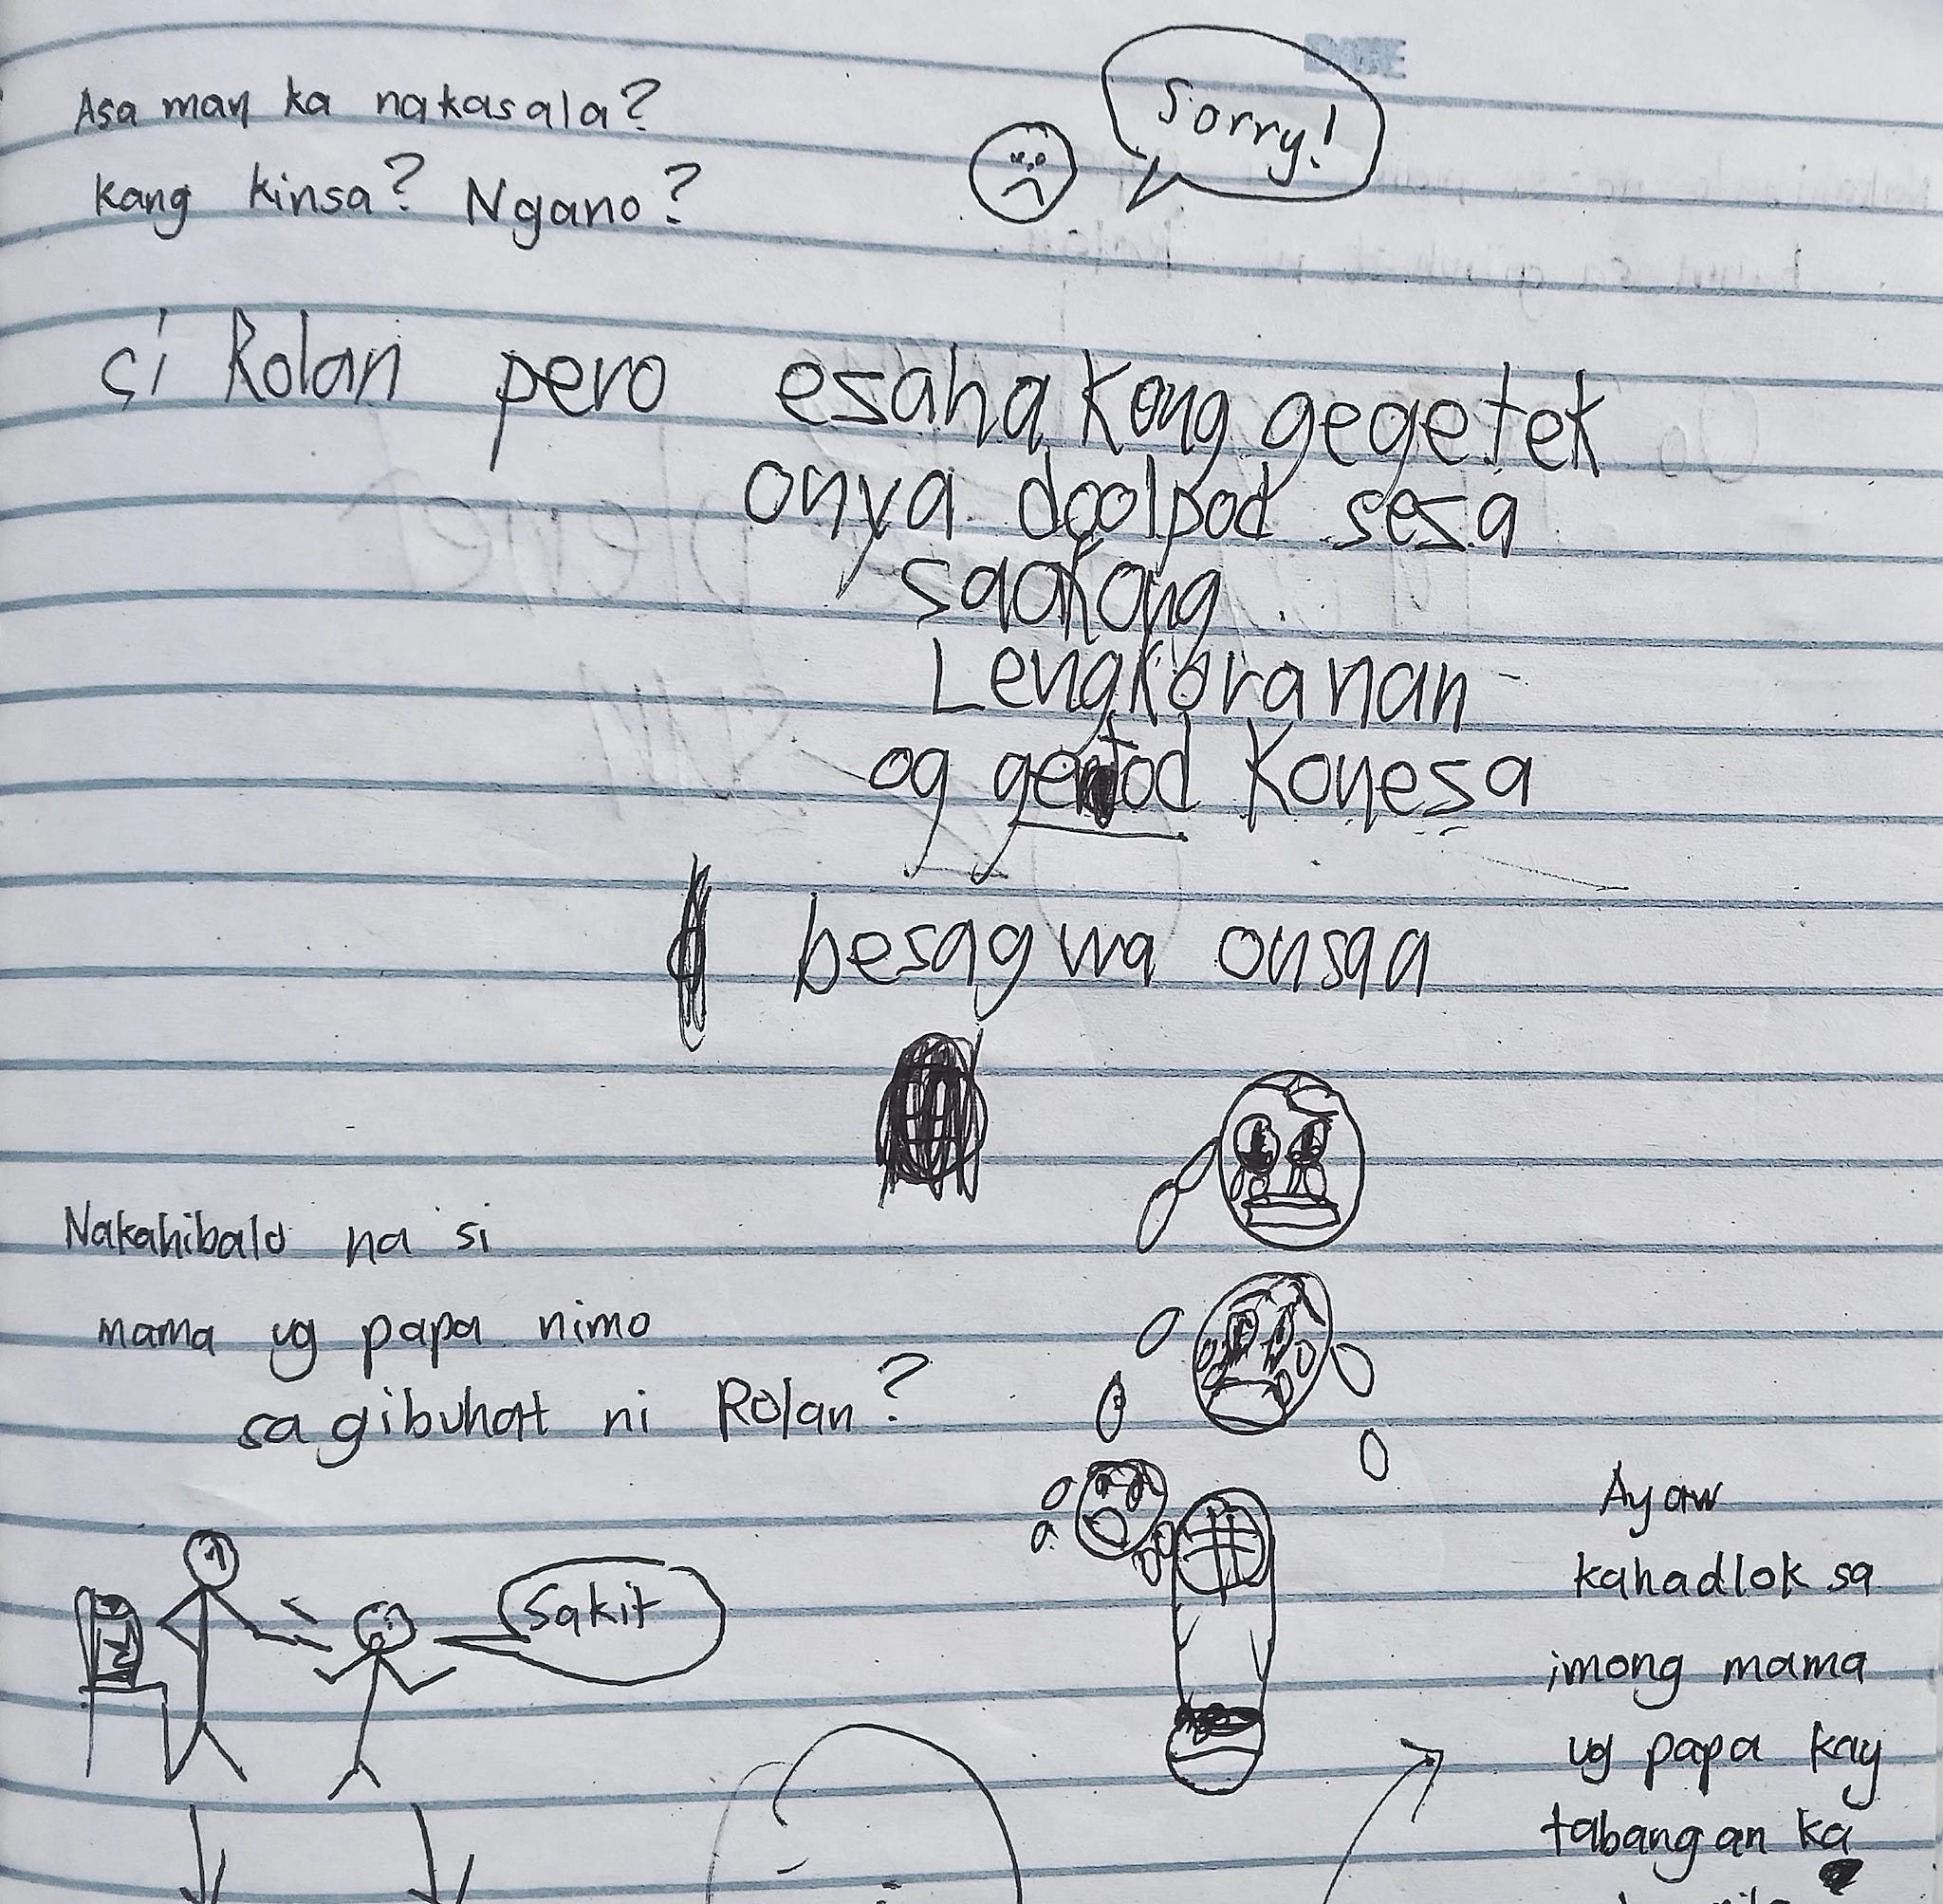 Asa man ka nakasala?
Sorry!
kang kinsa? Ngano?
si Rolan pero esaha kong gegetek
onya doolpod sesa
saakong
Lengkoranan
og gentod Konesa
besag wa onsaa
Nakahibalo na si
mama ug papa nimo
sa gibuhat ni Rolan?
Sakit
Ayaw
kahadlok sa
imong mama
ug papa kay
tabangan ka